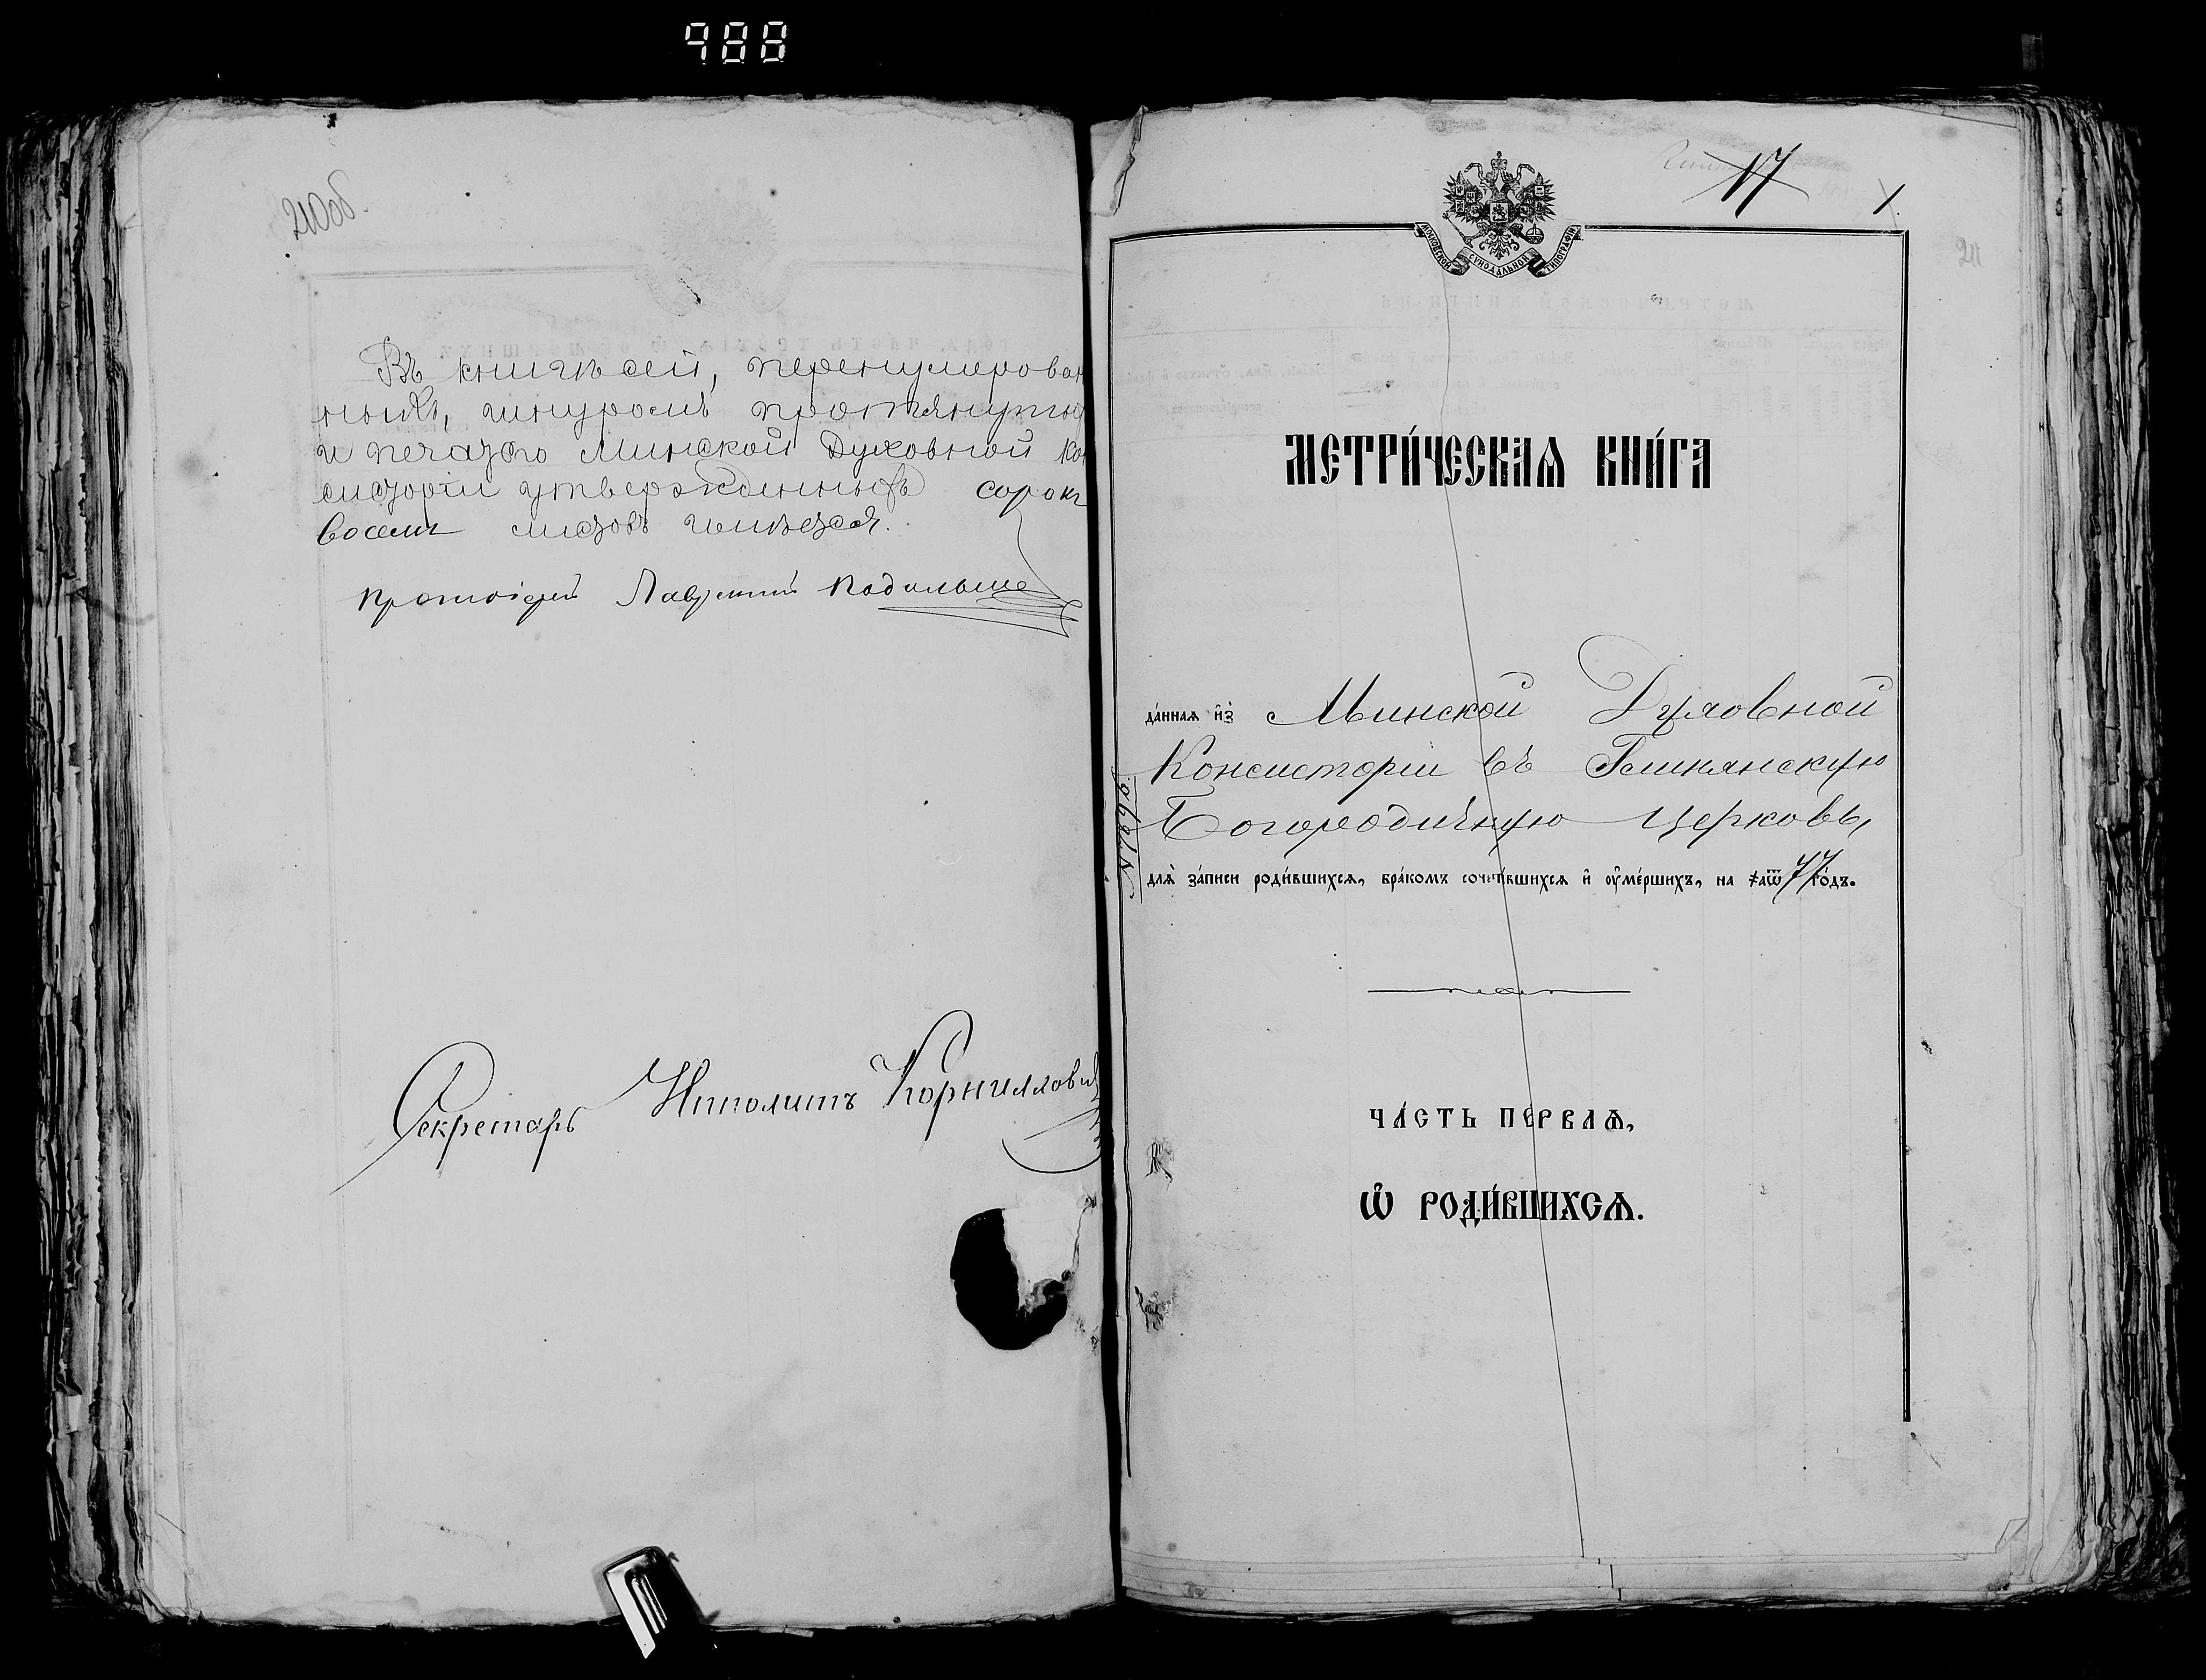 988
210об.
Въ книгѣ сей, перенумерован
ныхъ, шнуромъ протянуты
и печатью Минской Духовной Кон
систоріи утвержденныхъ сорокъ
восемь листовъ имѣется.
Протоіерей Лаврентій
Секретарь Ипполитъ Корнилович
17
1.
211
МОСКОВСКОЙ СѴНОДАЛЬНОЙ ТИПОГРАФІИ
МЕТРИ́ЧЕСКАѦ КНИ́ГА
да́ннаѧ и҆з̾ Минской Духовной
Консисторіи въ
Богородичную церковь,
длѧ̀ за́писи роди́вшихсѧ, бра́комъ сочета́вшихсѧ и҆ ᲂу҆ме́ршихъ, на ҂аѿ 77 го́дъ.
ЧА́СТЬ ПЕ́РВАѦ,
Ѡ҆ РОДИ́ВШИХСѦ.